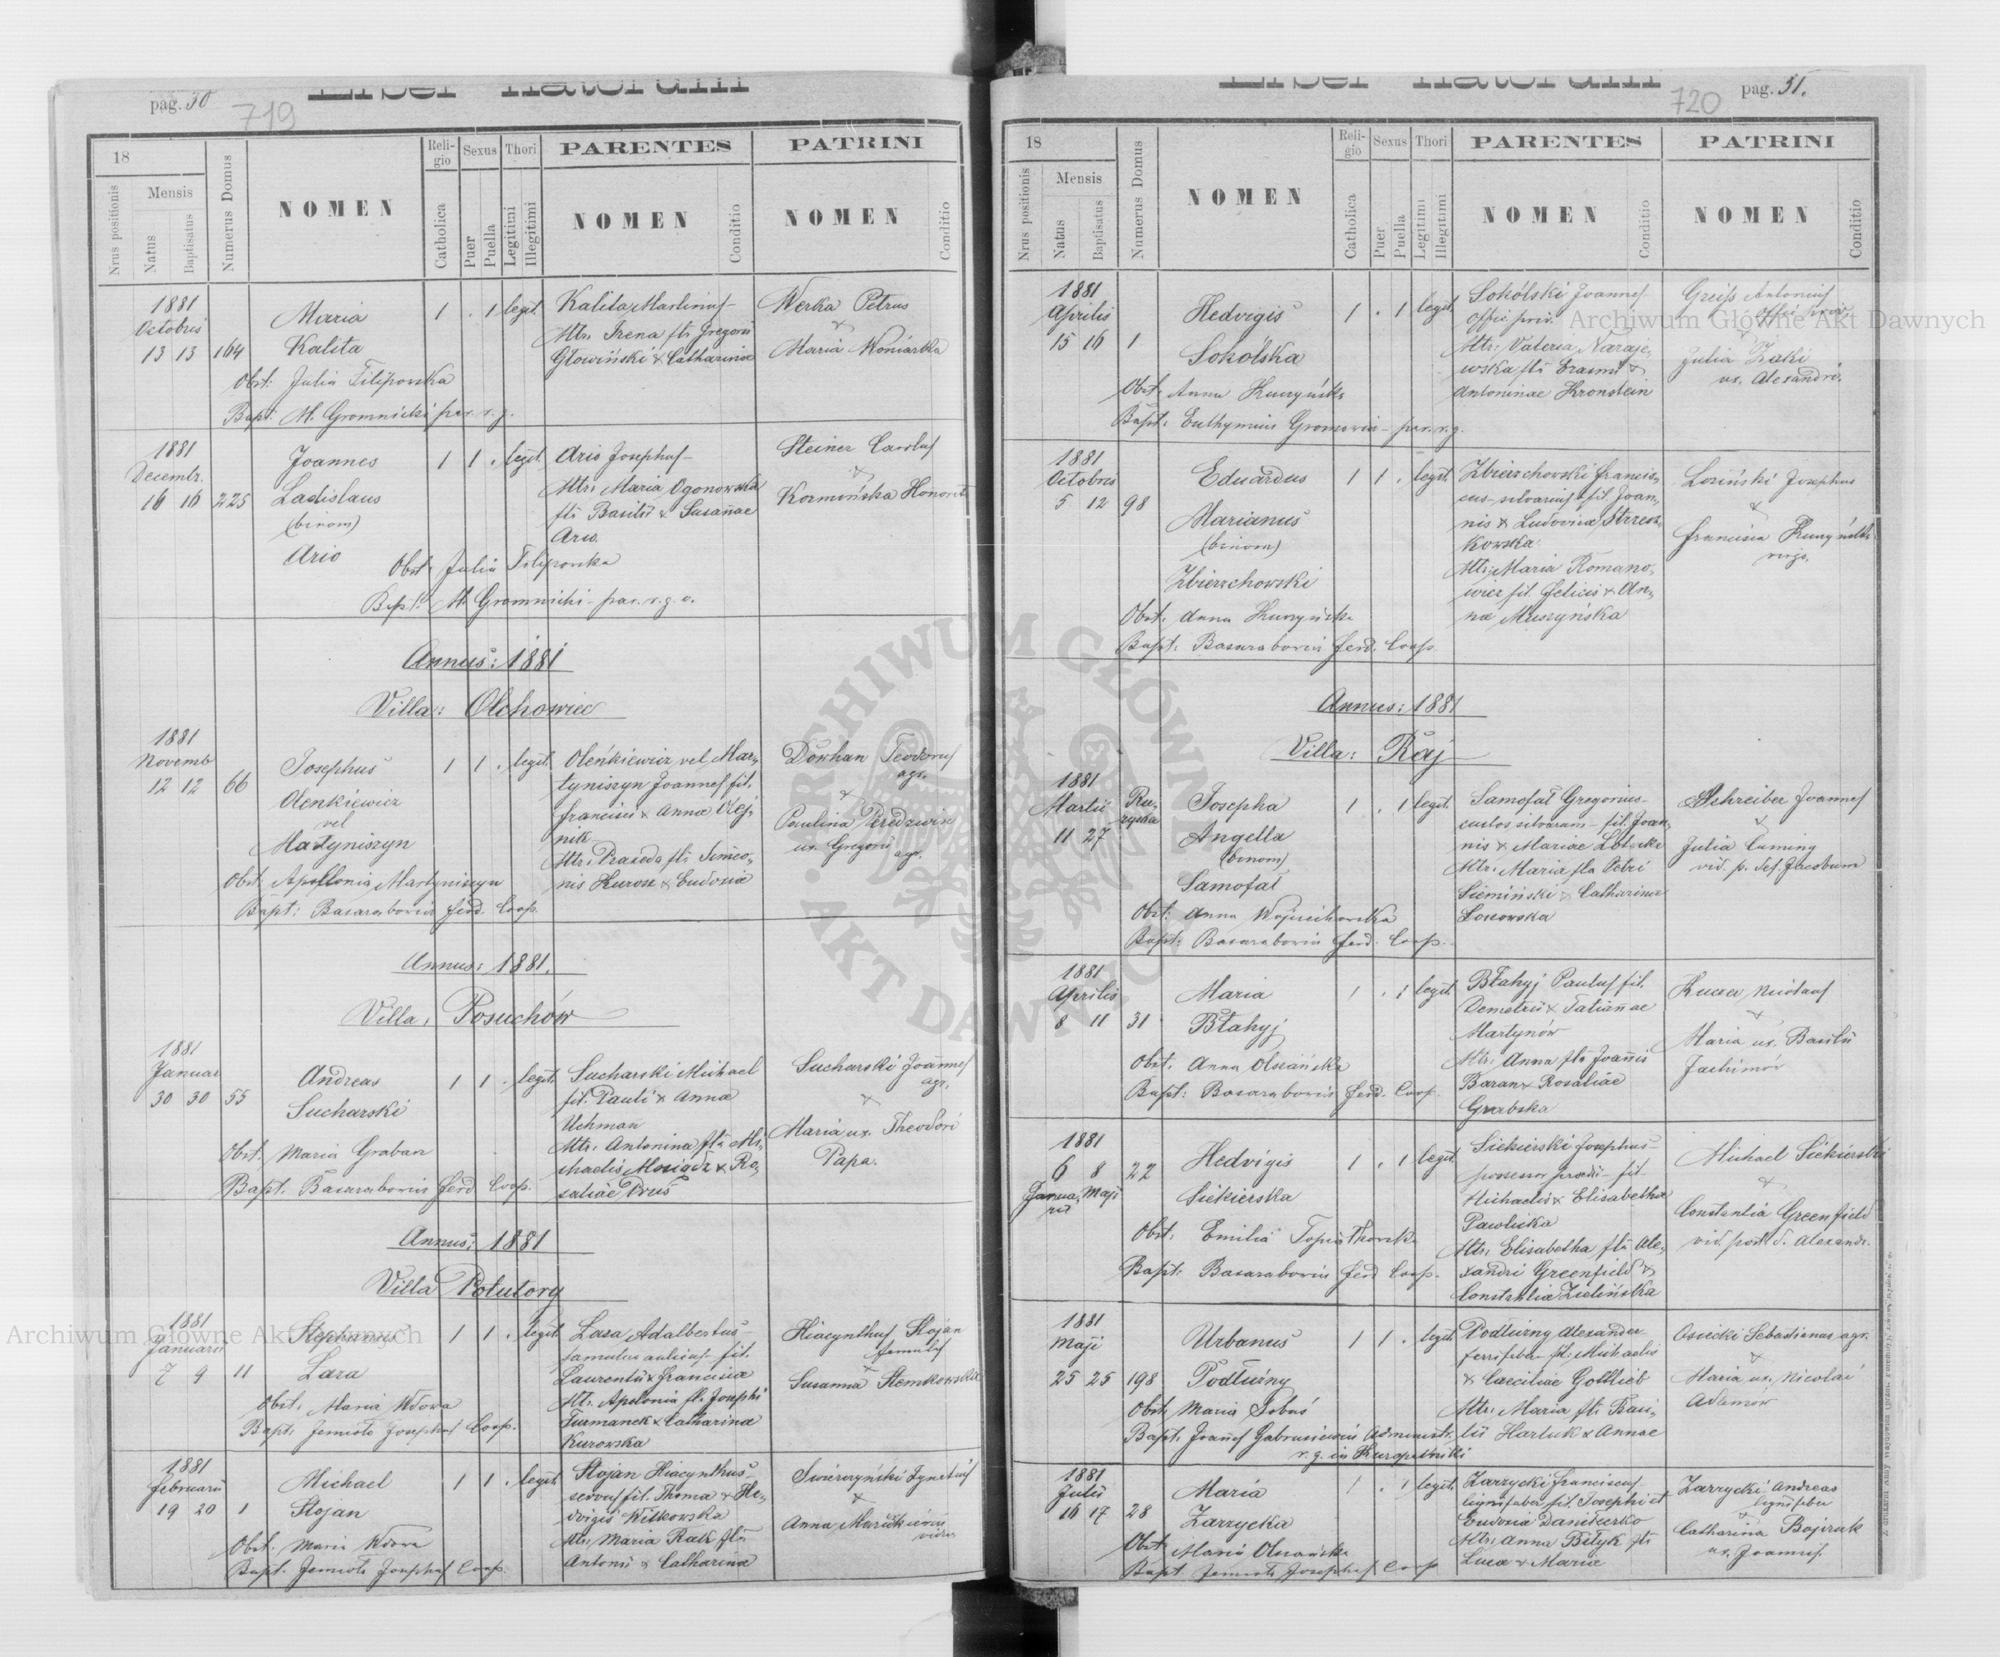 pag. 50
719
Liber natorum
18
Nrus positionis
Mensis
Natus
Baptisatus
Numerus Domus
NOMEN
Religio
Catholica
Sexus
Puer
Puella
Thori
Legitimi
Illegitimi
PARENTES
NOMEN
Conditio
PATRINI
NOMEN
Conditio
1881
Octobris
13 13 164
Maria
Kalita
1 . 1 legit.
Kalita Martinus
Mtr. Irena fta Gregorii
Głowiński & Catharina
Werka Petrus
&
Maria Woniarska
Obst: Julia Filipowska
Bapt: M. Gromnicki par. r. g.
1881
Decembr.
16 16 225
Joannes
Ladislaus
(binom)
Ario
1 1 . legit.
Ario Josephus
Mtr: Maria Ogonowska
fta Basilii & Susannae
Ario.
Steiner Carolus
&
Kozmińska Honorata
Obst: Julia Filipowska
Bapt: M. Gromnicki par. r. g. o.
Annus: 1881
Villa: Olchowiec
1881
Novemb
12 12 66
Josephus
Olenkiewicz
vel
Martyniszyn
1 1 . legit.
Oleńkiewicz vel Mar-
tyniszyn Joannes fil.
Francisci & Anna Olej-
nik
Mtr: Praxeda fta Simeo-
nis Kurosz & Eudoxia
Dowhan Teodorus
agr.
&
Paulina
ux. Gregorii
agr.
Obst. Apollonia Martyniszyn
Bapt: Basarabowicz Ferd. Coop.
Annus: 1881.
Villa: Posuchów
1881
Januar
30 30 55
Andreas
Sucharski
1 1 . legit.
Sucharski Michael
fil. Pauli & Anna
Uchman
Mtr. Antonina fta Mi-
chaelis & Ro-
saliae Prus
Sucharski Joannes
agr.
&
Maria ux. Theodori
Papa.
Obst. Maria Graban
Bapt. Basarabowicz Ferd. Coop.
Annus: 1881
Villa Potutory
1881
Januarii
7 9 11
Stephanus
Lasa
1 1 . legit.
Lasa Adalbertus
famulus aulicus fil.
Laurentii & Francisca
Mtr. Apolonia fta Josephi
Furmanek & Catharina
Kurowska
Hiacynthus Stojan
famulus
&
Susanna Stemkowska
Obst. Maria Wdowa
Bapt. Jemioło Josephus Coop.
1881
Februarii
19 20 1
Michael
Stojan
1 1 . legit.
Stojan Hiacynthus
servus fil. Thoma & He-
dvigis Witkowska
Mtr. Maria Rak fta
Antonii & Catharina
Świerczyński Ignatius
&
Anna
vidua
Obst. Maria Wdowa
Bapt. Jemioło Josephus Coop.
pag. 51.
720
Liber natorum
18
Nrus positionis
Mensis
Natus
Baptisatus
Numerus Domus
NOMEN
Religio
Catholica
Sexus
Puer
Puella
Thori
Legitimi
Illegitimi
PARENTES
NOMEN
Conditio
PATRINI
NOMEN
Conditio
1881
Aprilis
15 16 1
Hedvigis
Sokólska
1 . 1 legit.
Sokólski Joannes
offic. priv.
Mtr: Valeria Naraje-
wska fta Erasmi &
Antoninae Kronstein
Greiss Antonius
offic. priv.
&
Julia Żaki
ux. Alexandri.
Obst. Anna Kuczyńska
Bapt: Euthymius Gromowicz par. r. g.
1881
Octobris
5 12 98
Eduardus
Marianus
(binom)
Zbierzchowski
1 1 . legit.
Zbierzchowski Francis-
cus silvarius fil. Joan-
nis & Ludovica Strzesz-
kowska.
Mtr: Maria Romano-
wicz fil. Felicis & An-
na Muszyńska
Loziński Josephus
&
Francisca Kuczyńska
virgo.
Obst. Anna Kuczyńska
Bapt: Basarabowicz Ferd. Coop.
Annus: 1881
Villa: Raj
1881
Martii
11 27
Ru-
ryska
Josepha
Angella
(binom)
Samofał
1 . 1 legit.
Samofał Gregorius
custos silvarum fil. Joan-
nis & Mariae
Mtr: Maria fta Petri
Siemiński & Catharina
Lossowska
Schreiber Joannes
&
Julia Cuming
vid. p. def. Jacobum
Obst: Anna Wojciechowska
Bapt: Basarabowicz Ferd. Coop.
1881
Aprilis
8 11 31
Maria
Błahyj
1 . 1 legit.
Błahyj Paulus fil.
Demetrii & Tatianae
Martynów
Mtr: Anna fta Joannis
Baran & Rosaliae
Grabska
Kucer Nicolaus
&
Maria ux. Basilii
Jachimów
Obst. Anna Olszańska
Bapt: Basarabowicz Ferd. Coop.
1881
6 8 22
Janua-
rii
Maji
Hedvigis
Siekierska
1 . 1 legit.
Siekierski Josephus
possessor praedii fil.
Michaelis & Elisabetha
Pawlicka
Mtr: Elisabetha fta Ale-
xandri Greenfield &
Constantia Zielińska
Michael Siekierski
&
Constantia Greenfield
vid. post d. Alexandr.
Obst. Emilia
Bapt: Basarabowicz Ferd Coop.
1881
Maji
25 25 198
Urbanus
Podłużny
1 1 . legit.
Podłużny Alexander
ferrifaber fil. Michaelis
& Caeciliae Gottlieb
Mtr: Maria fta Basi-
lii Harluk & Annae
Osiecki Sebastianus agr.
&
Maria ux. Nicolai
Adamow
Obst. Maria Soboń
Bapt. Joannes Gabrusiewicz Administr.
r. g. in Kuropatniki
1881
Julii
16 17 28
Maria
Zarzycka
1 . 1 legit.
Zarzycki Franciscus
lignifaber fil. Josephi et
Eudoxia Daniłecko
Mtr: Anna Bilyk fta
Luca & Maria
Zarzycki Andreas
lignifaber
&
Catharina Bojczuk
ux. Joannis.
Obst. Maria Olszańska
Bapt Jemioło Josephus Coop
Archiwum Główne Akt Dawnych
Archiwum Główne Akt Dawnych
ARCHIWUM GŁÓWNE AKT DAWNYCH